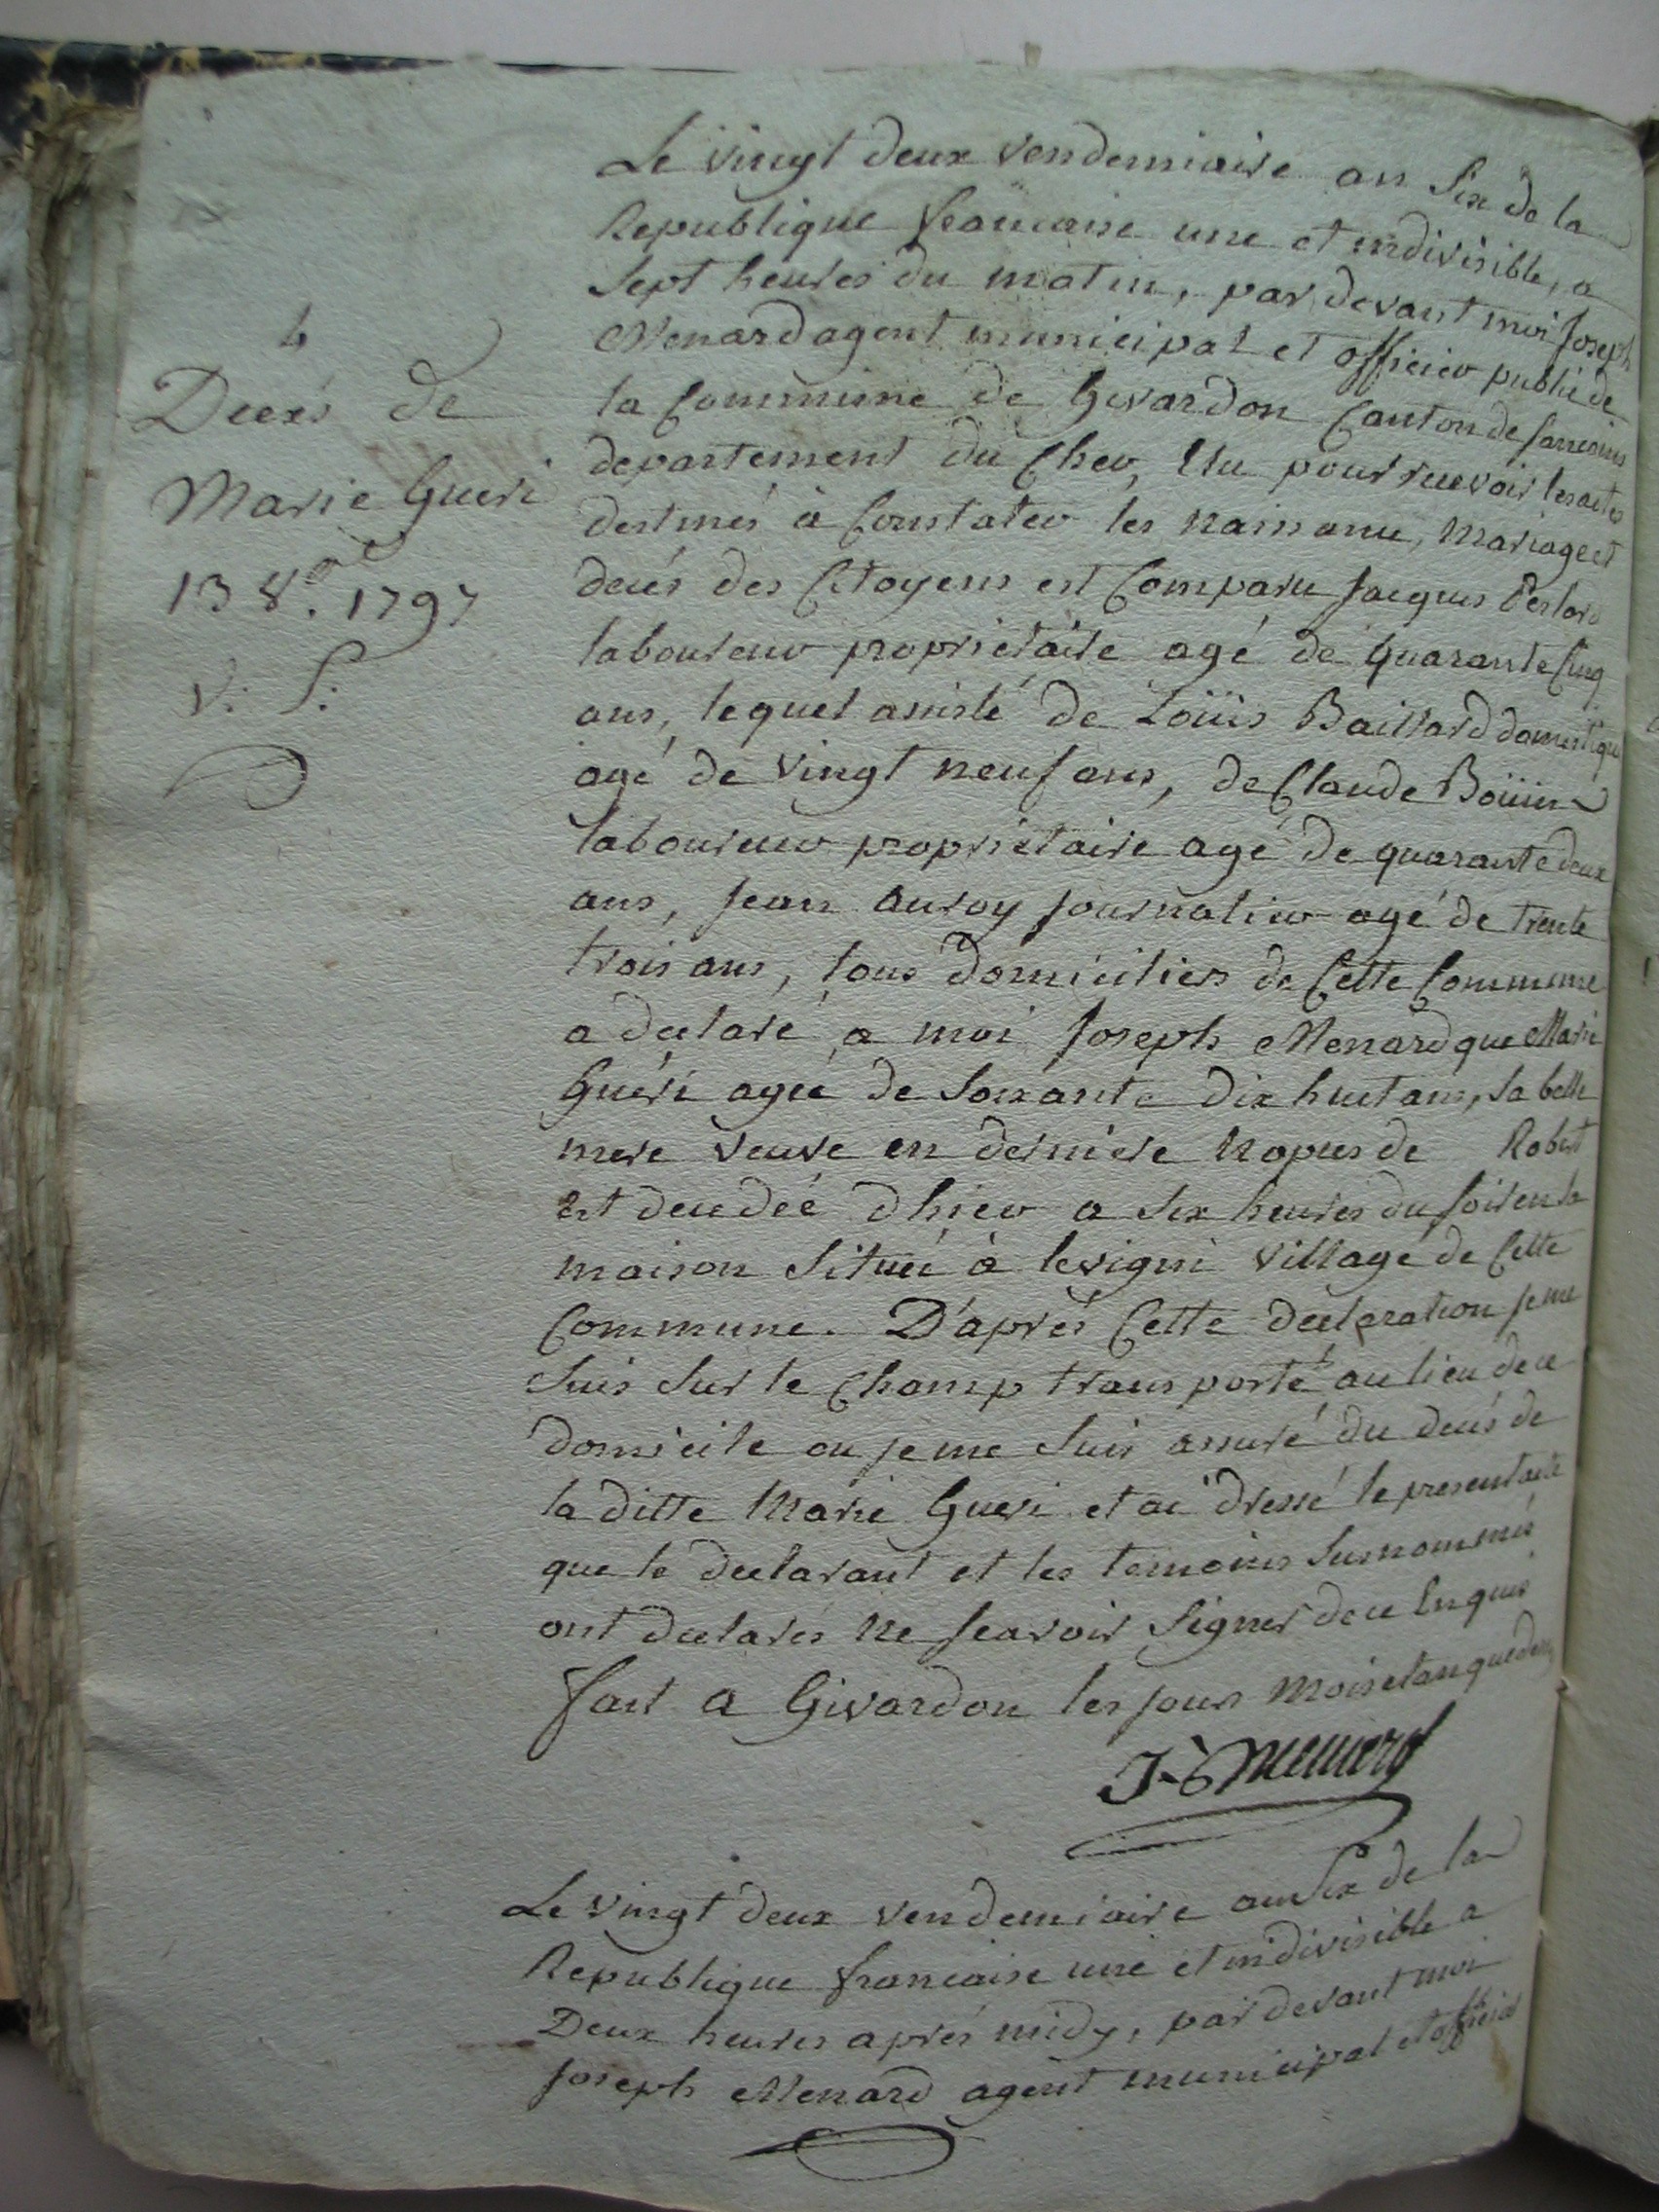 Le vingt deux vendemiaire an Six de la
Republique francaise une et indivisible, a
Sept heures du matin, par devant moi Joseph
Menard agent municipal et officier public de
la Commune de Givardon Canton de Sancoins
departement du Cher, Elu pour recevoir les actes
destinés à Constater les naissance, Mariage et
decés des Citoyens est Comparu Jacques
laboureur proprietaire agé de quarante Cinq
ans, lequel assisté de Loüis Baillard domestique
agé de vingt neuf ans, de Claude Boüin
laboureur proprietaire agé de quarante deux
ans, Jean auroy Journalier agé de trente
trois ans, tous domiciliers de Cette Commune
a declaré a moi Joseph Menard que Marie
Guéri agée de Soixante dix huit ans, Sa belle
mere veuve en derniere nopces de Robert
Est decedée d'hier a Six heures du Soir en Sa
maison Située à levigni village de Cette
Commune. D'aprés Cette declaration je me
Suis Sur le Champ transporté au lieu de ce
domicile ou je me Suis assuré du decés de
la ditte Marie Gueri et ai dressé le present acte
que le declarant et les temoins Surnommés
ont declarés ne Scavoir Signer de ce Enquis
fait a Givardon les jour mois et an que dessus
J. Menard
4
Decés de
Marie Gueri
13 8.bre 1797
V. S.
Le vingt deux vendemiaire an Six de la
Republique francaise une et indivisible a
Deux heures aprés midy, par devant moi
Joseph Menard agent municipal et officier